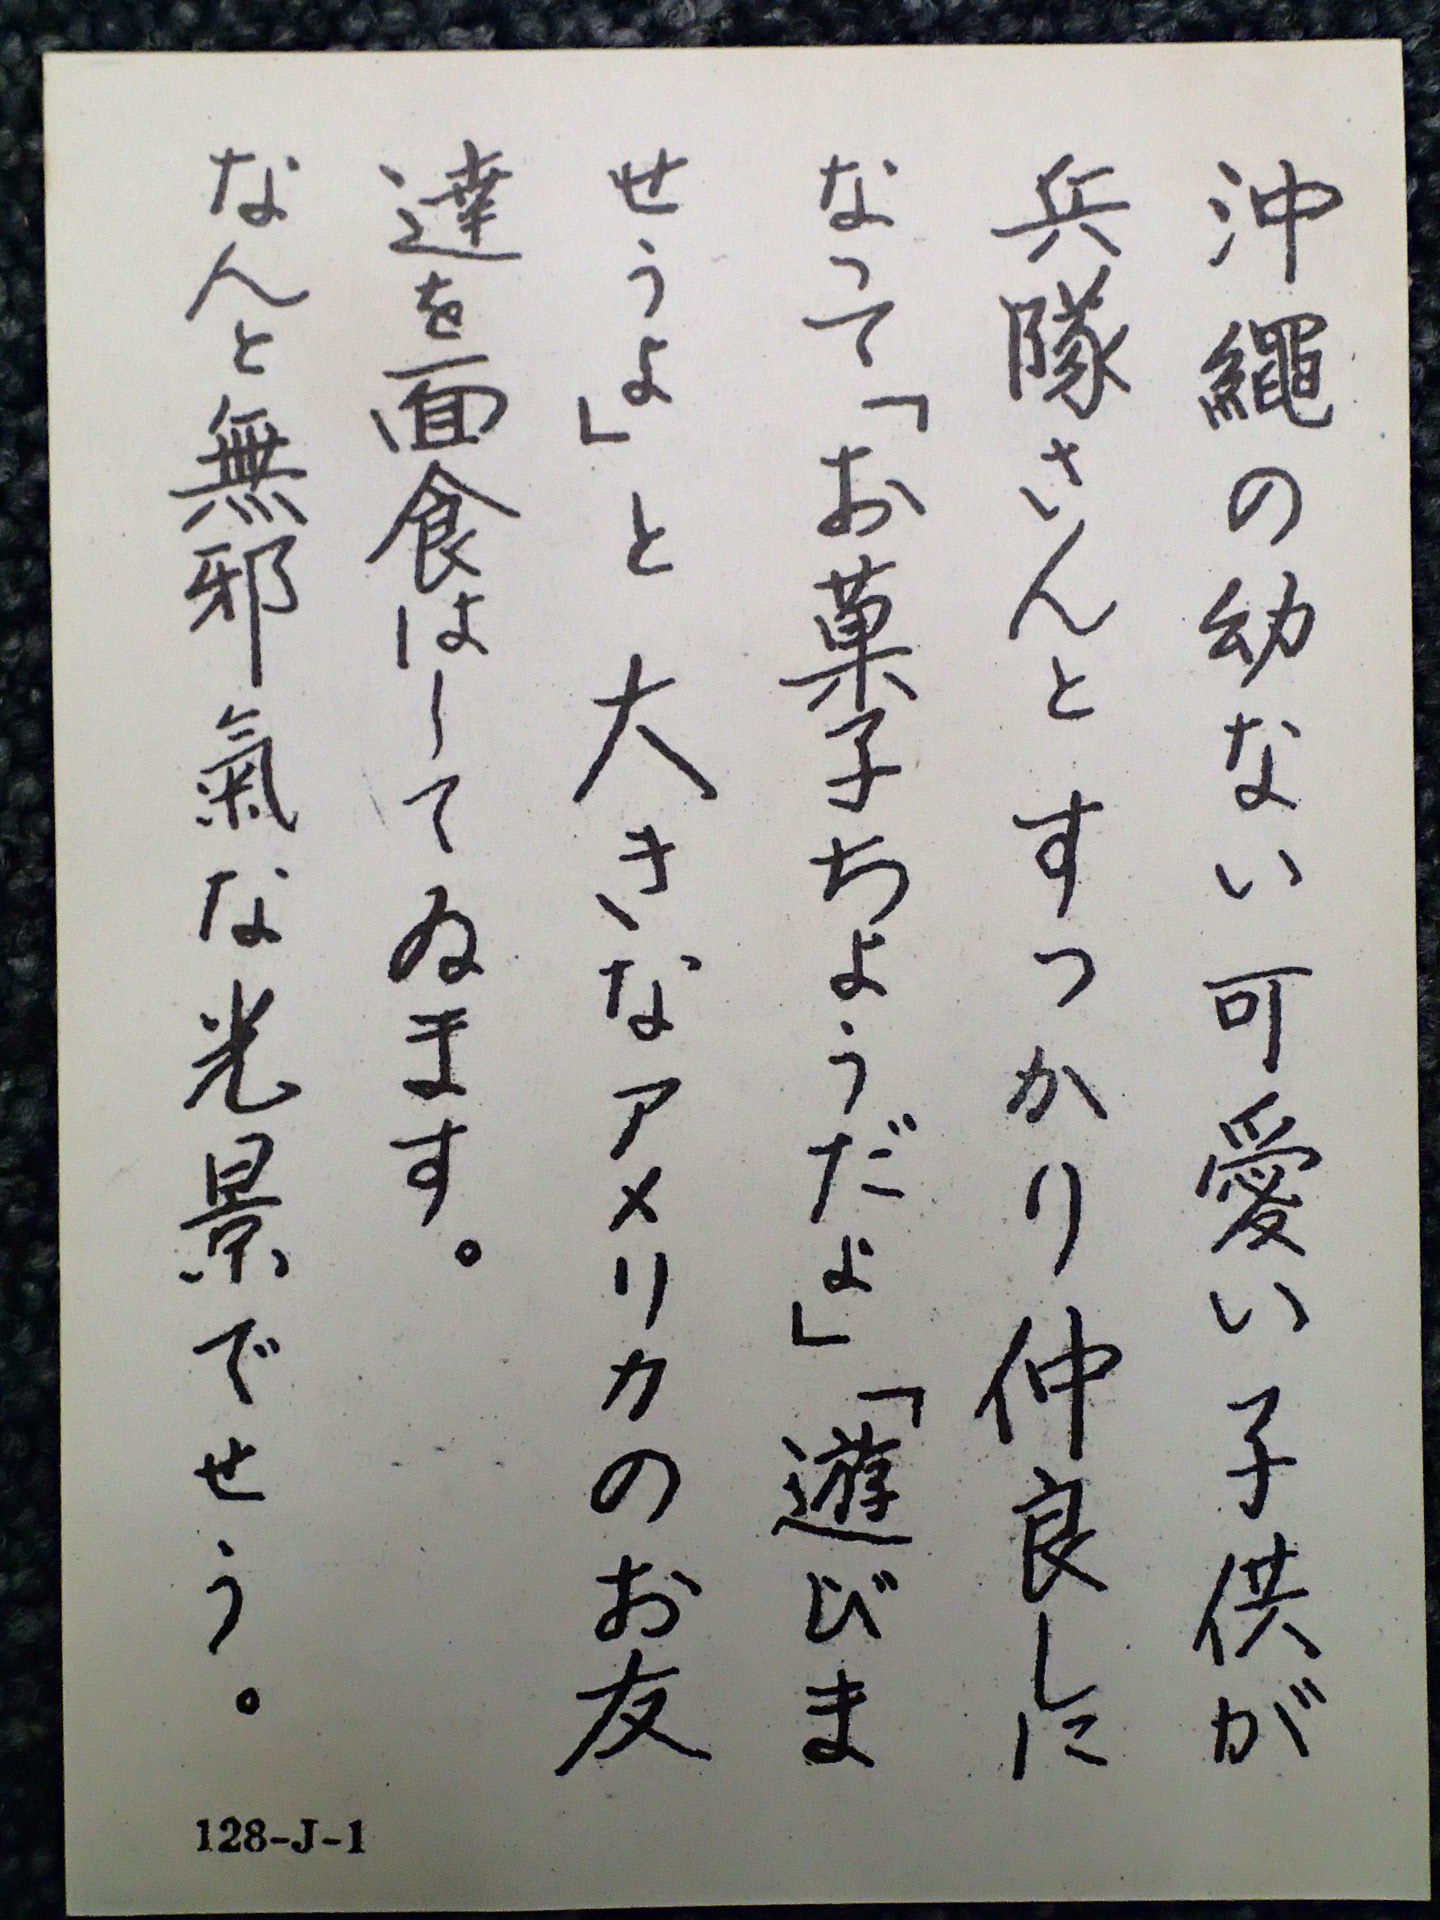 沖繩の幼ない可愛い子供が
兵隊さんとすつかり仲良しに
なつて「お菓子ちようだよ」「遊びま
せうよ」と大きなアメリカのお友
達を面食はしてゐます。
なんと無邪氣な光景でせう。
128-J-1